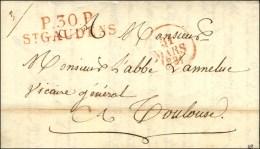 P.30.P.
ST GAUDENS
A Monsieur
31
MARS
Monsieur l'abbé Lanneluc
Vicaire général
A Toulouse.